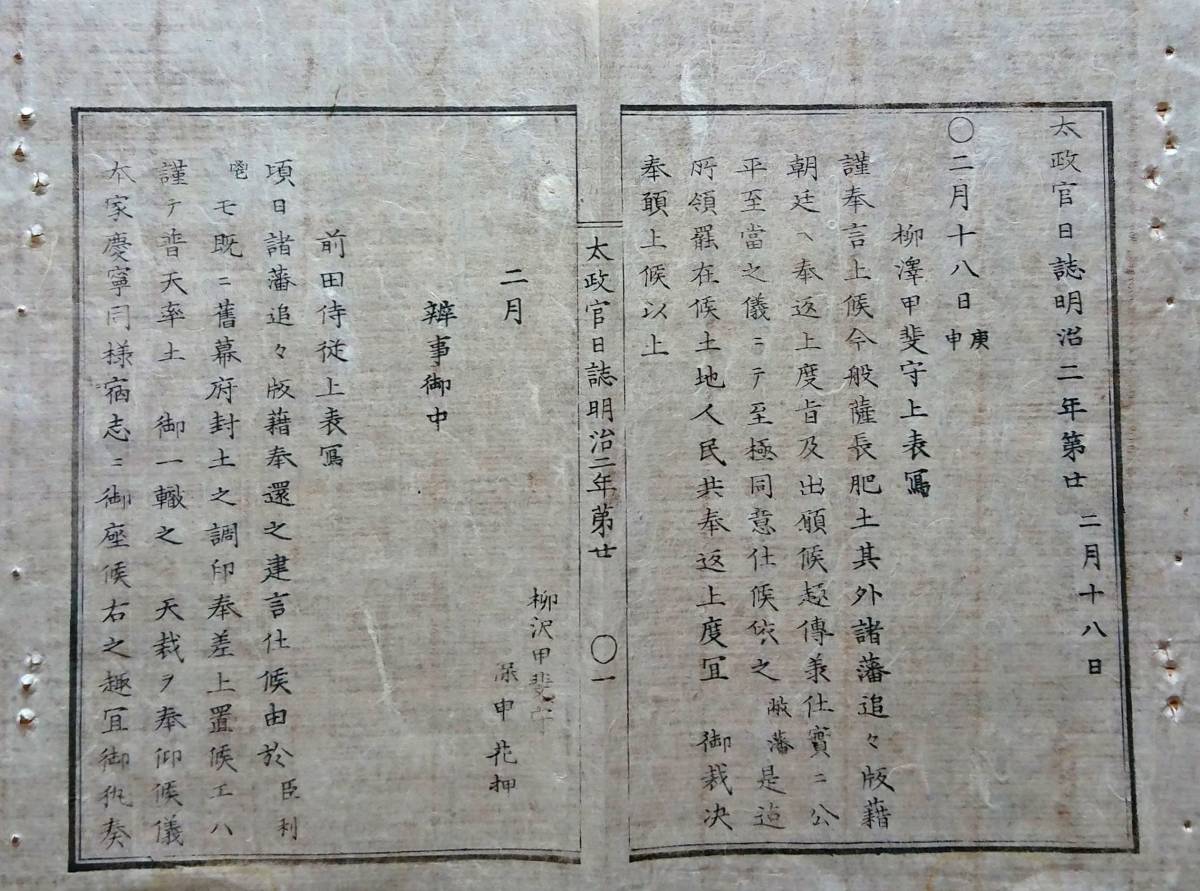 太政官日誌明治二年第廿 二月十八日
〇二月十八日 庚申
柳澤甲斐守上表寫
謹奉言上候今般薩長肥土其外諸藩追々版藉
朝廷ヘ奉返上度旨及出願候趣傳兼仕實ニ公
平至當之儀ニテ至極同意仕候依之 敝藩是迄
所領罷在候土地人民共奉返上度冝 御裁决
奉願上候以上
太政官日誌明治二年第廿 〇一
柳沢甲斐守
保申 花押
二月
辨事御中
前田侍従上表寫
頃日諸藩追々版藉奉還之建言仕候由於 臣利
鬯 モ既ニ舊幕府封土之調印奉差上置候エハ
謹テ普天率土 御一轍之 天裁ヲ奉仰候儀
本家慶寧同様宿志ニ御座候右之趣冝御執奏